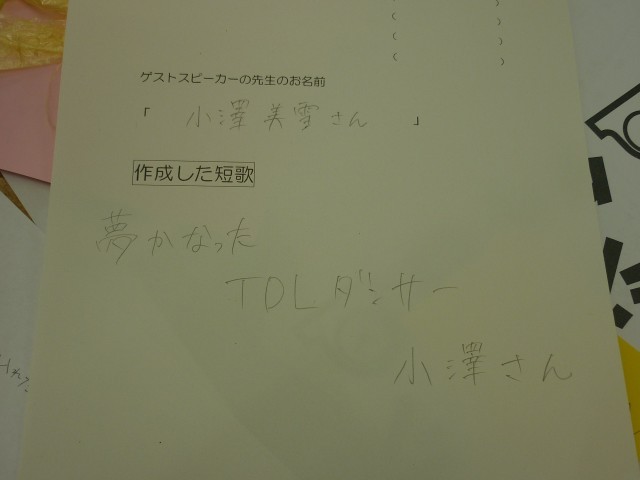 (　　　　　　)
(　　　　　　)
(　　　　　　)
ゲストスピーカーの先生のお名前
「　小澤美雪さん　」
作成した短歌
夢かなった
TDLダンサー
小澤さん